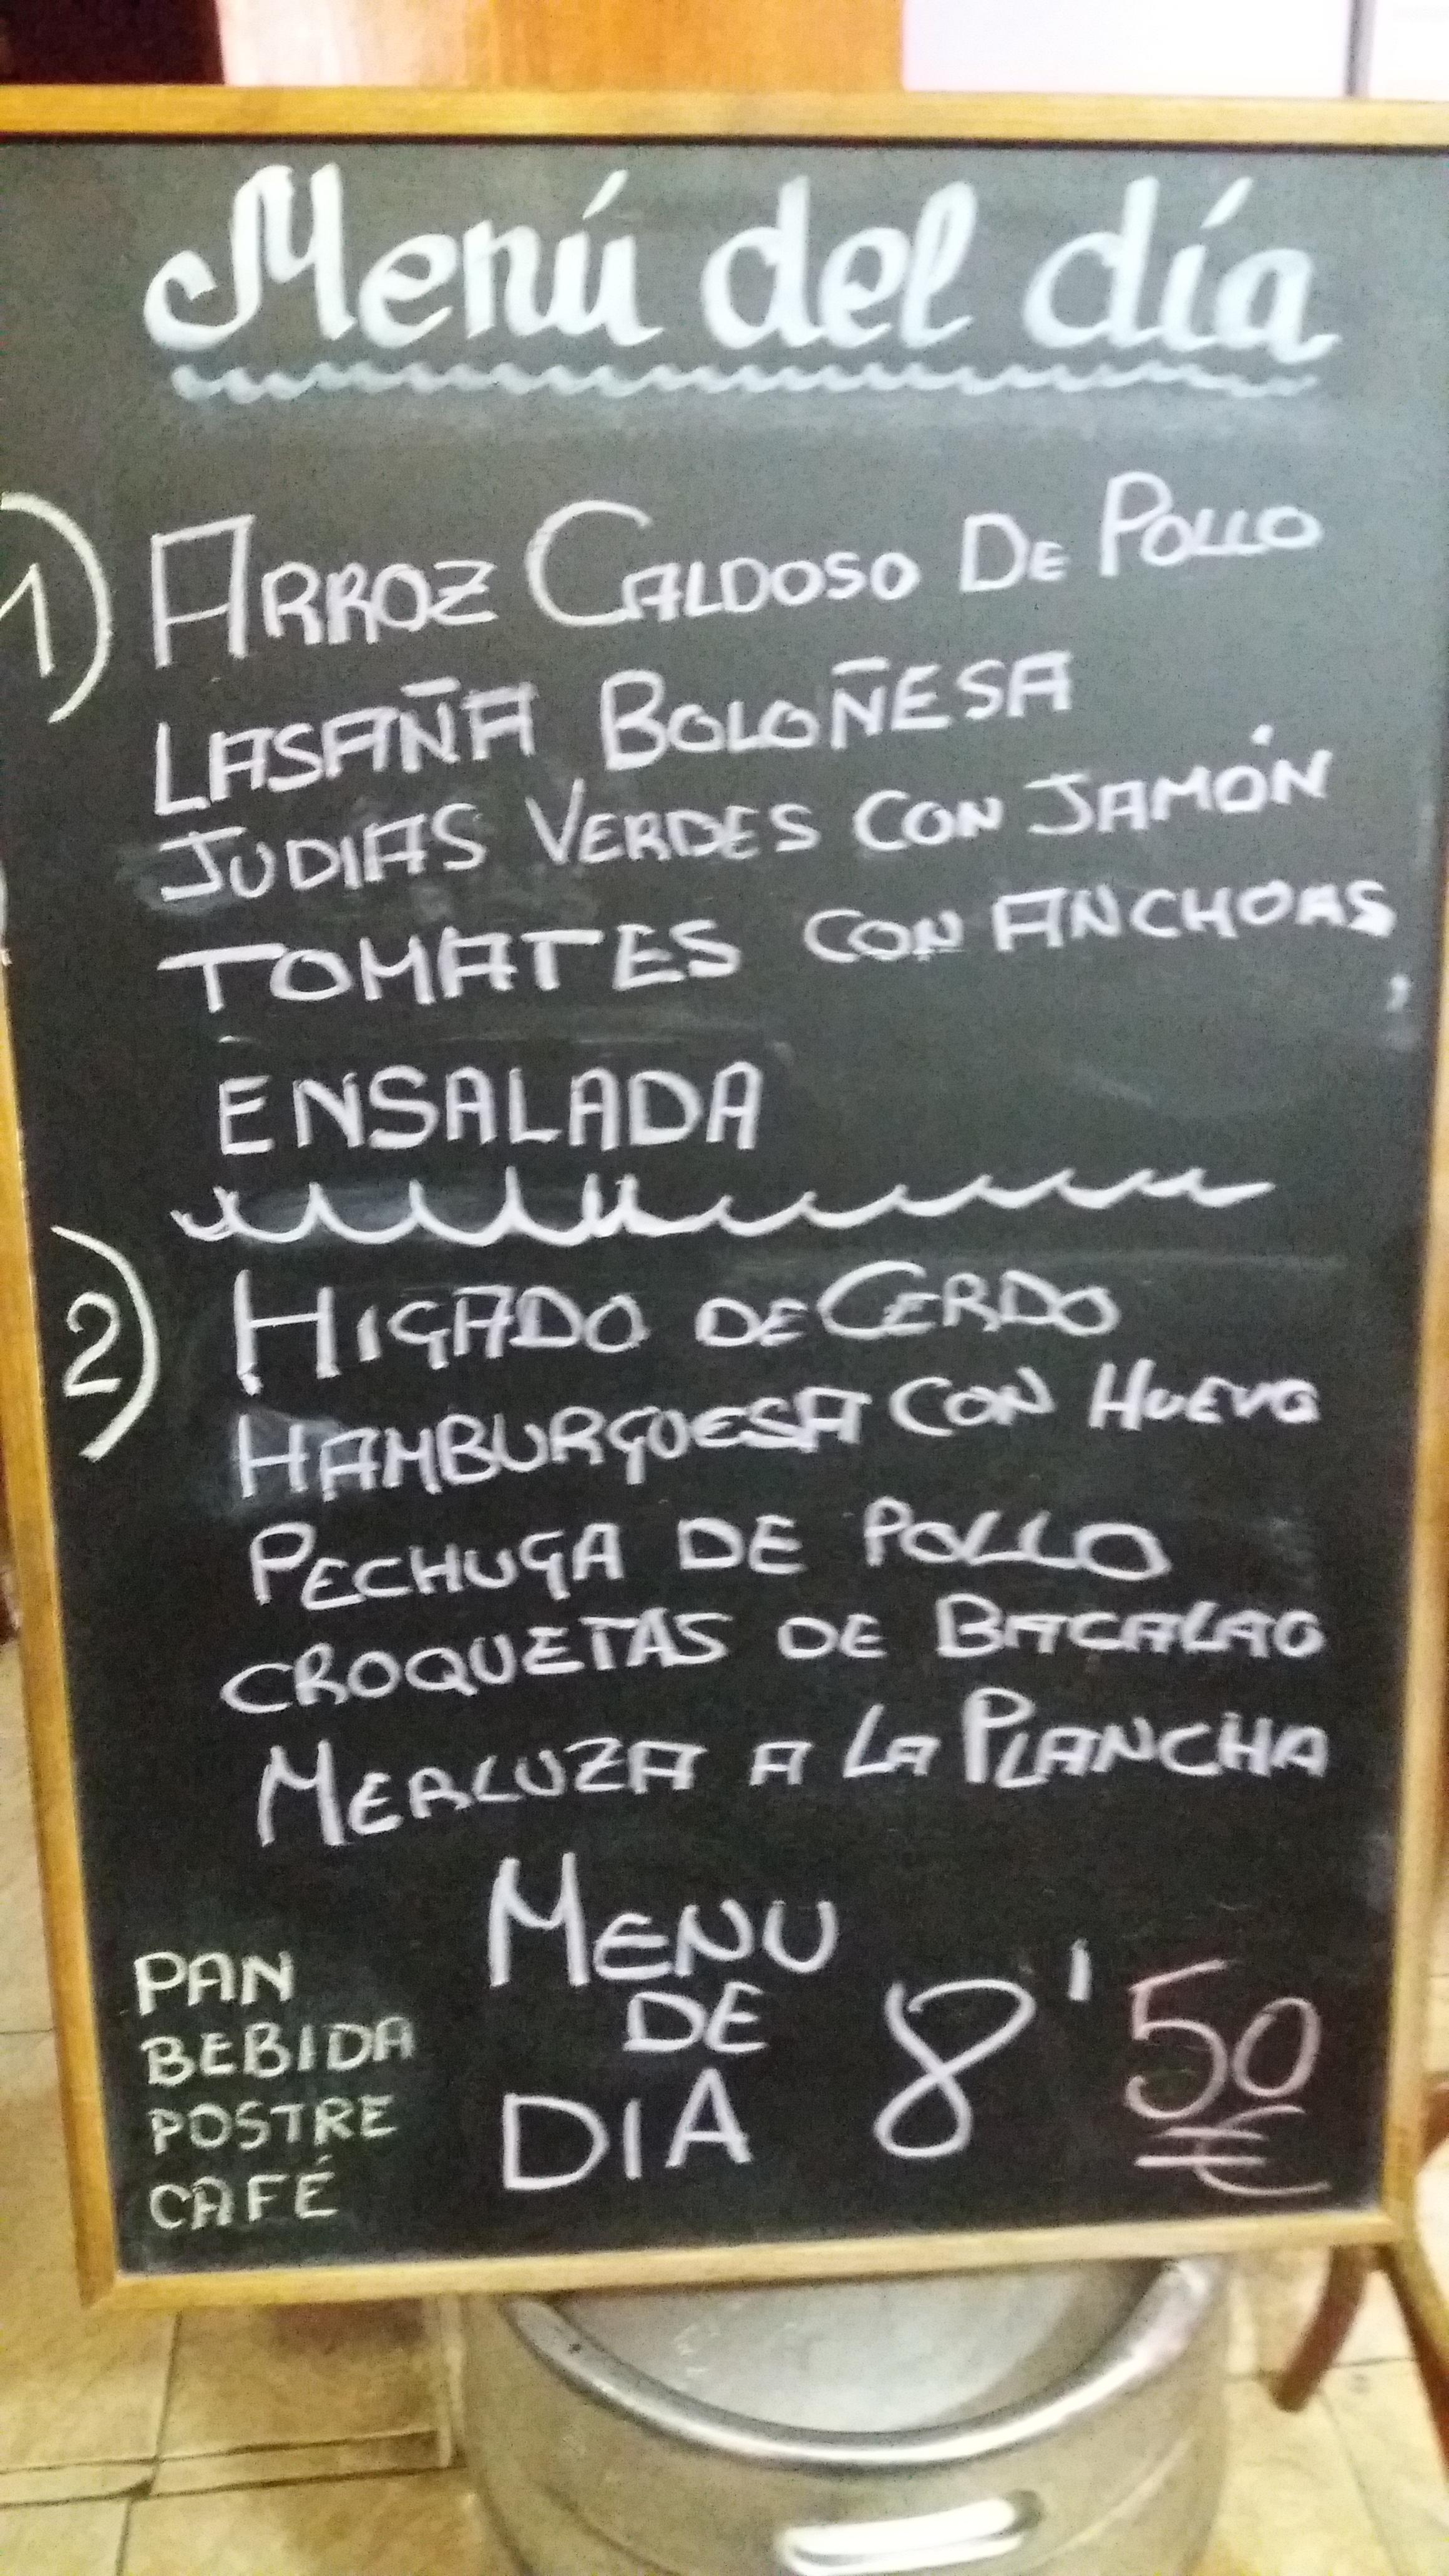 Menú del día
1) ARROZ CALDOSO DE POLLO
LASAÑA BOLOÑESA
JUDIAS VERDES CON JAMÓN
TOMATES CON ANCHOAS
ENSALADA
2) HIGADO DE CERDO
HAMBURGUESA CON HUEVO
PECHUGA DE POLLO
CROQUETAS DE BACALAO
MERLUZA A LA PLANCHA
PAN
BEBIDA
POSTRE
CAFÉ
MENU
DE
DIA
8'50
€